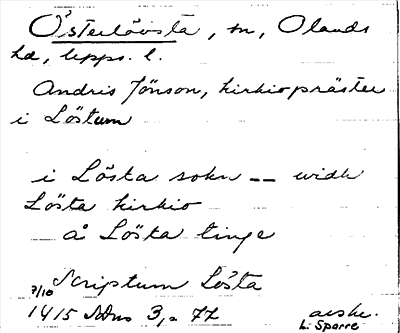 Österlövsta, sn, Olands
hd, Upps. l.
Andris Jönson, kirkiopräster
i Löstum
i Lösta sokn -- widh
Lösta kirkio
å Lösta tinge
Scriptum Lösta
7/10
1415 SDns 3, s 77 avskr.
L. Sparre